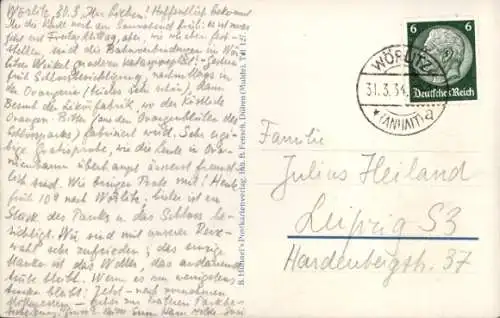 Wörlitz, 30.3. Ihr Lieben! Hoffentlich bekommt
Ihr die Karte noch am Sonnabend früh: es ist zwar
jetzt erst Freitagmittag, aber, wie wir eben fest-
stellen sind die Bahnverbindungen im Wör-
litzer Winkel
früh Schlossbesichtigung, nachmittags in
die Orangerie (beides sehr schön), dann
Besuch der Likörfabrik, wo der köstliche
Orangen-Bitter (aus den Orangenblüten des
Schlossparks) fabriziert wird. Sehr
bige Gratisprobe, wie die Leute in Ora-
nienbaum überhaupt äusserst freund-
lich sind. Wir bringen Probe mit! Heute
früh 10° nach Wörlitz, bisher ist ein
Stück des Parks u. das Schloss be-
sichtigt. Wir sind mit unserer
wahl sehr zufrieden; das einzig
ist das Wetter, das andauernd
trübe bleibt. Wenn es nur wenigstens
trocken bleibt! Jetzt - nach
B. Hübner's Postkartenverlag, Inh. B. Fersch, Düben (Mulde), Tel. 127.
6 6
Deutsches Reich
WÖRLITZ
31.3.34.
(ANHALT)
Familie
Julius Heiland
Leipzig S3
Hardenbergstr. 37